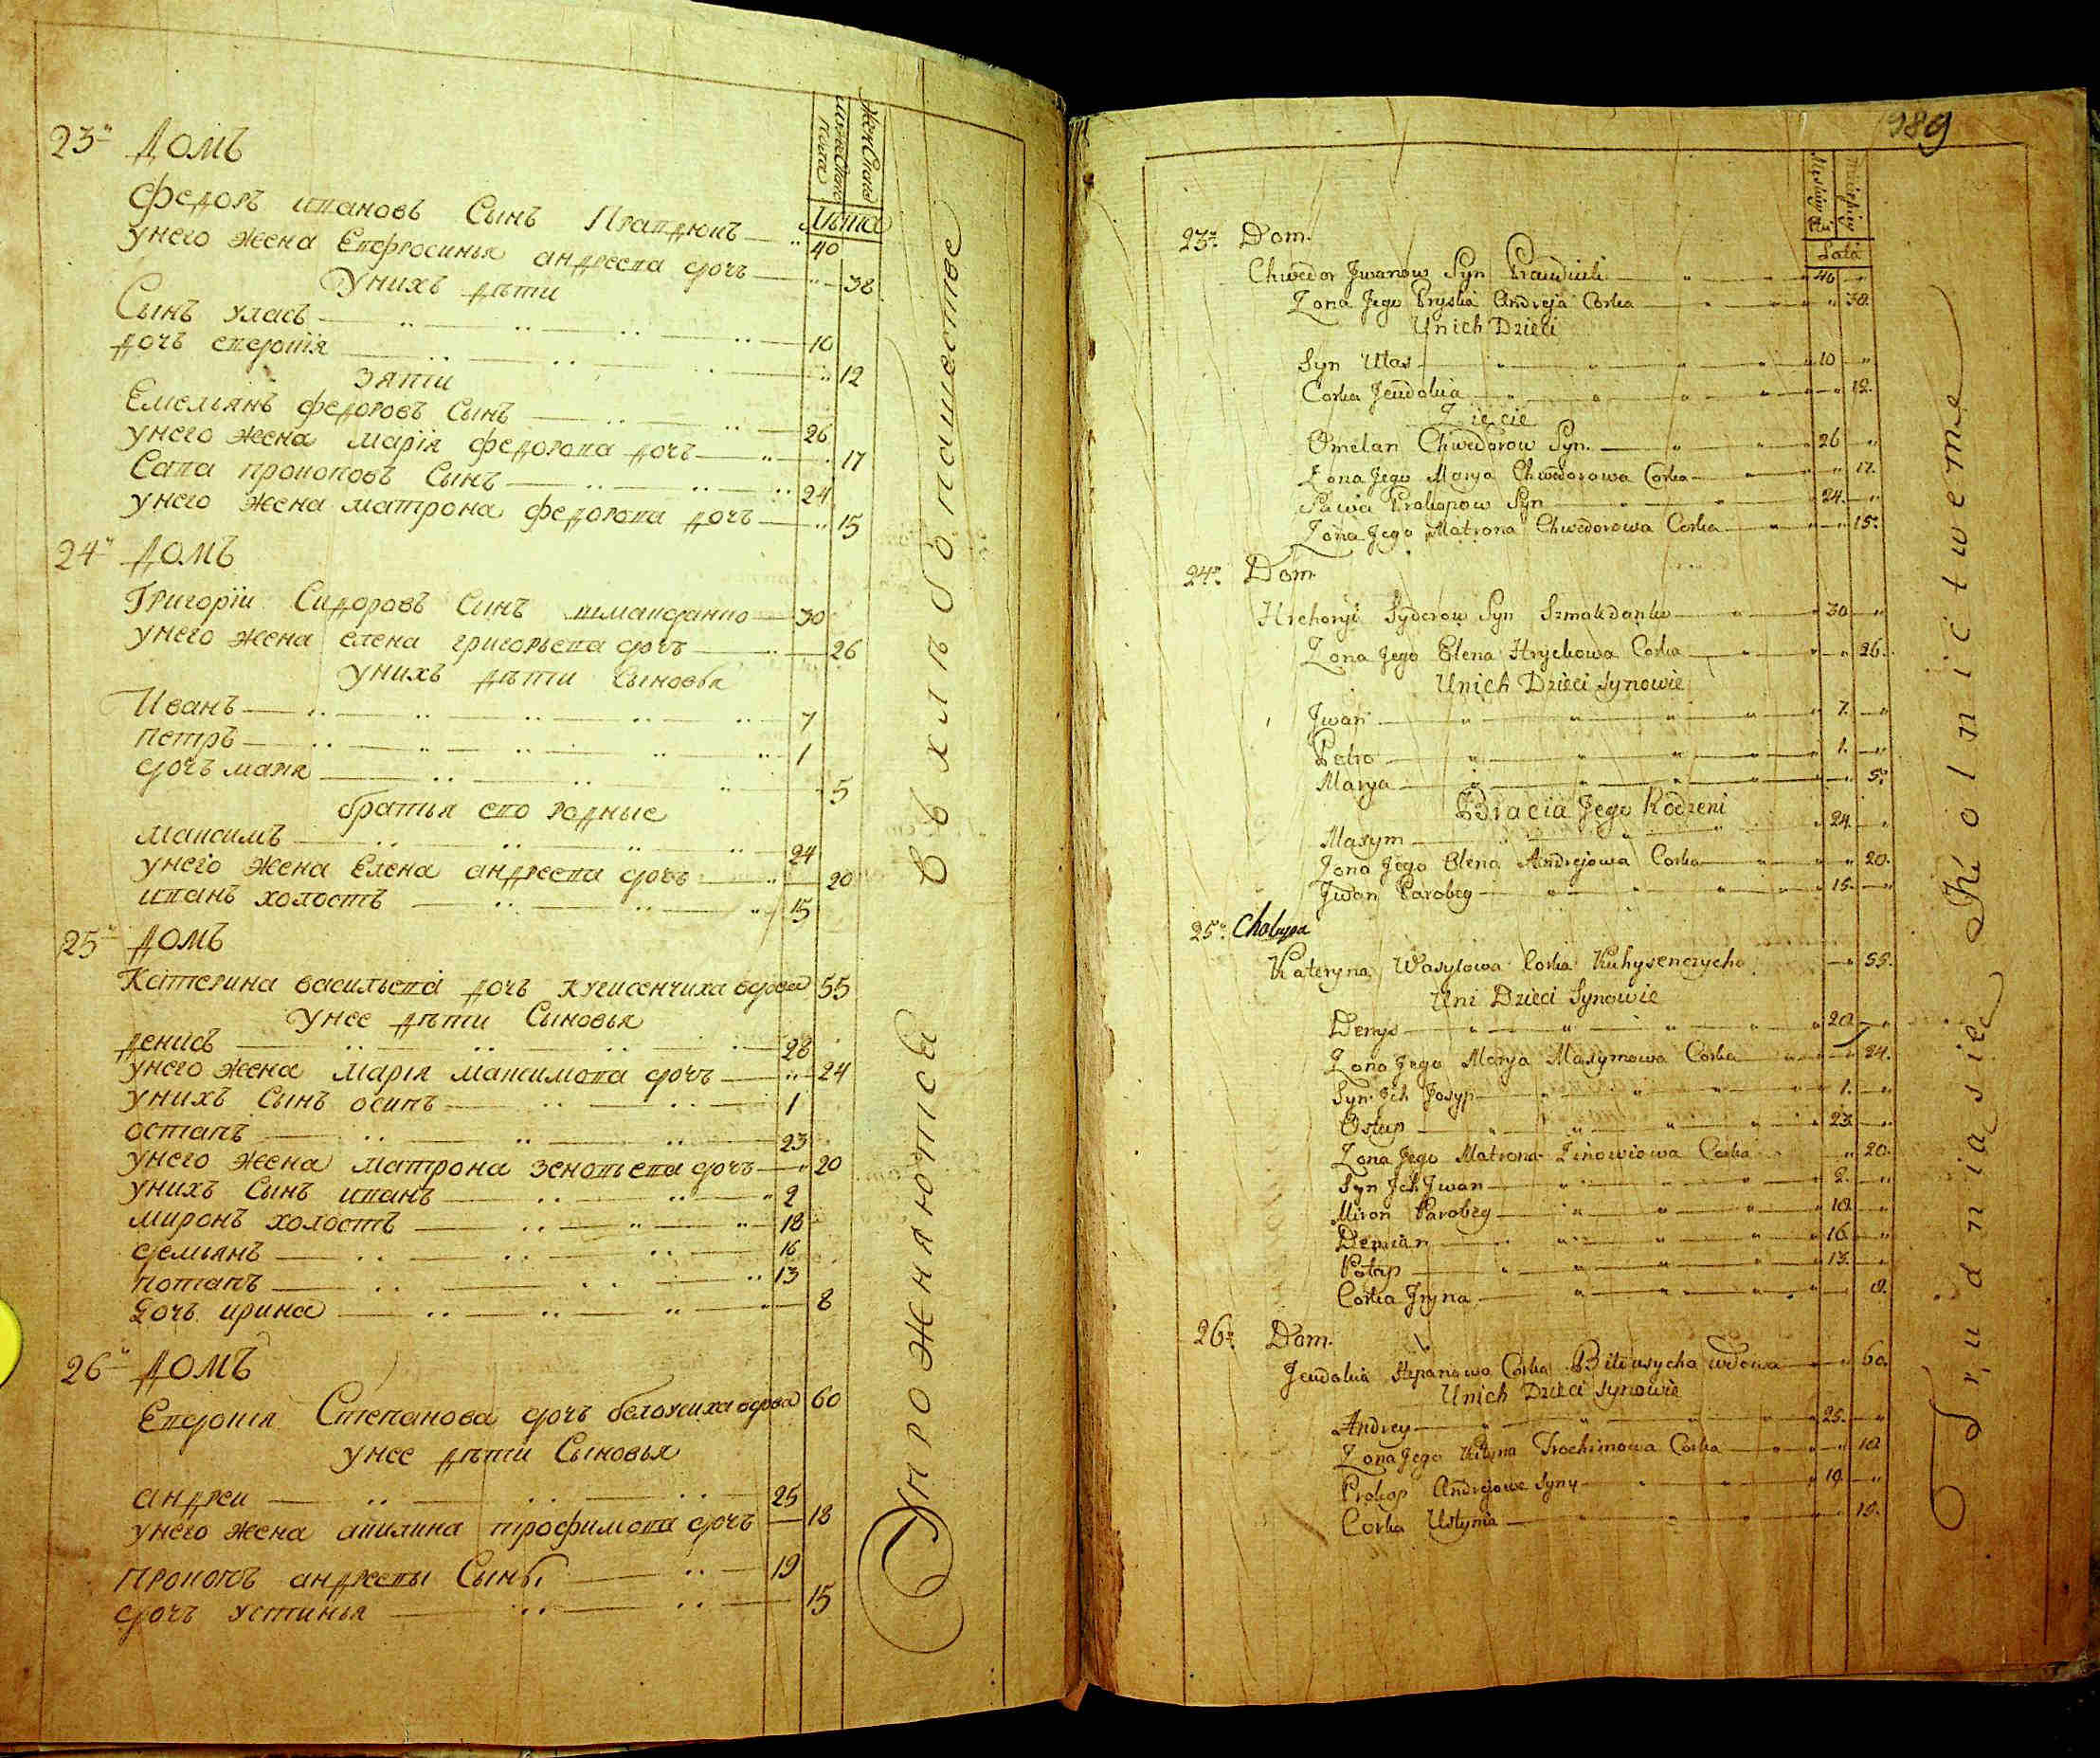 Женска
мужеска
пола
Лѣта
23й Домъ
Федоръ ивановъ Сынъ Правдюкъ 40
унего жена Евфросинья андреева дочь 38
Унихъ дѣти
Сынъ уласъ 10
дочь евдокія 12
зяти
Емельянъ федоровъ Сынъ 26
унего жена марія федорова дочь 17
Сава прокоповъ Сынъ 24
унего жена матрона федорова дочь 15
24й Домъ
Григоріи Сидоровъ Синъ шмакданко 30
унего жена елена григорьева дочь 26
унихъ дѣти Сыновья
Иванъ 7
петръ 1
дочь маря 5
братья его родные
максимъ 24
унего жена Елена андреева дочь 20
иванъ холостъ 15
25й Домъ
Катерина васильева дочь кугисенчиха вдова 55
унее дѣти Сыновья
денисъ 28
унего жена марія максимова дочь 24
унихъ Сынъ осипъ 1
остапъ 23
унего жена матрона зеновьева дочь 20
унихъ Сынъ иванъ 2
миронъ холостъ 18
демьянъ 16
потапъ 13
Дочь ирина 8
26й Домъ
Евдокія Степанова дочь белоусиха вдова 60
унее дѣти Сыновья
андреи 25
унего жена акилина трофимова дочь 18
прокопъ андреевы Сынъ 19
дочь устинья 15
Упорожняютса въ хлѣбопашестве
989
Męskiey
Lata
23o Dom.
Chwedor Jwanow Syn Prawdiuk 40
Zona Jego Pryska Andreja Corka 38.
Unich Dzieci
Syn Ułas 10
Corka Jewdokia 12.
Zięcie
Omelan Chwedorow Syn. 26
Zona Jego Marya Chwedorowa Corka 17.
Sawa Prokopow Syn 24.
Zona Jego Matrona Chwedorowa Corka 15.
24o Dom.
Hrehoryi Syderow Syn Szmakdanko 30
Zona Jego Elena Hryckowa Corka 26.
Unich Dzieci Synowie
Jwan 7.
Petro 1.
Marya 5.
Bracia Jego Rodzeni
Maxym 24.
Zona Jego Elena Andrejowa Corka 20.
Jwan Parobeg 15.
25o Chałupa
Kateryna Wasylowa Corka Kuhysenczycha 55.
Uni Dzieci Synowie
Denys 28
Zona Jego Marya Maxymowa Corka 24.
Syn Jch Josyp 1.
Ostap 23.
Zona Jego Matrona Zinowiowa Corka 20.
Syn Jch Jwan 2.
Miron Parobeg 18
Demian 16
Potap 13.
Corka Jryna 8.
26o Dom.
Jewdokia Stepanowa Corka Biłousycha wdowa 60.
Unich Dzieci Synowie
Andrey 25.
Zona Jego Kilyna Trochimowa Corka 18
Prokop Andrejowe Syny 19.
Corka Ustynia 15.
Trudnia się Rolnictweme